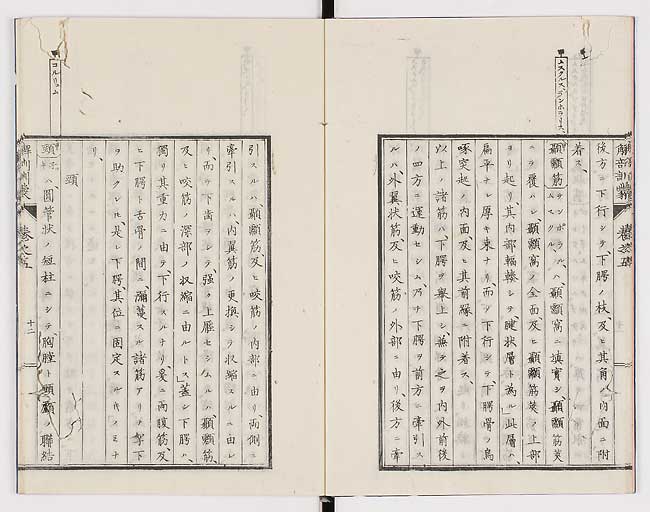 ムスクルス、テンポラーリス、
解剖訓蒙
巻之五
後方ニ下行シテ、下腭ノ枝、及ヒ其角ノ内面ニ附
着ス、
顳顬筋 ムスクル、テンポラル、ハ、顳顬窩ニ填實シ、顳顬筋莢
ニテ覆ハレ、顳顬窩ノ全面、及ヒ顳顬筋莢ノ上部
ヨリ起リ、其内部輻輳シテ、腱状層ト為ル、此層ハ、
扁平ナレ厚キ束ナリ、而シテ下行シテ、下腭骨ノ烏
啄突起ノ内面、及ヒ其前縁ニ附着ス、
以上ノ諸筋ハ、下腭ヲ舉上シ、兼テ之ヲ内外前後
ノ四方ニ運動セシム、乃チ下腭ヲ前方ニ牽引ス
ルハ、外翼状筋、及ヒ咬筋ノ外部ニ由リ、後方ニ牽
引スルハ、顳顬筋、及ヒ咬筋ノ内部ニ由リ、両側ニ
牽引スルハ、内翼筋ノ更換シテ收縮スルニ由レ
リ、而シテ下齒ヲシテ強ク上壓セシムルハ、顳顬筋、
及ヒ咬筋ノ深部收縮ニ由ルトス、蓋シ下腭ハ、
獨リ其重力ニ由テ、下行スルナリ、爰ニ両腹筋、及
ヒ下腭ト舌骨ノ間ニ瀰蔓スル諸筋アリテ、幇下
ヲ助クレ𪜈、是レ下腭其位ニ固定スル片ノミナ
リ、
頸
コルリュム
頸ハ、圓管状ノ短柱ニシテ、胸膛ト頭顱ノ聯結
解剖訓蒙
巻之五
十二